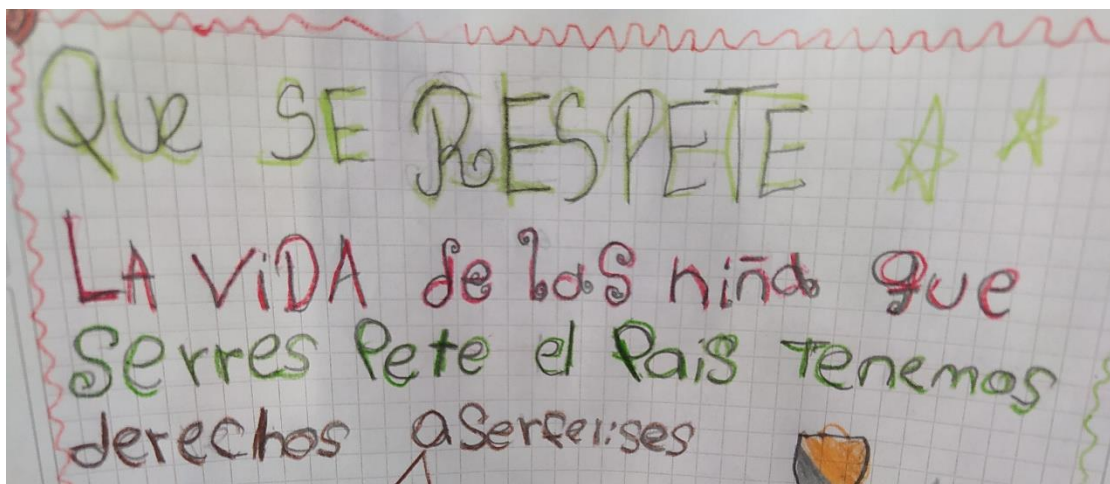 Que SE RESPETE
LA ViDA de las niña que
Serres Pete el Pais Tenemos
derechos aSerfeises